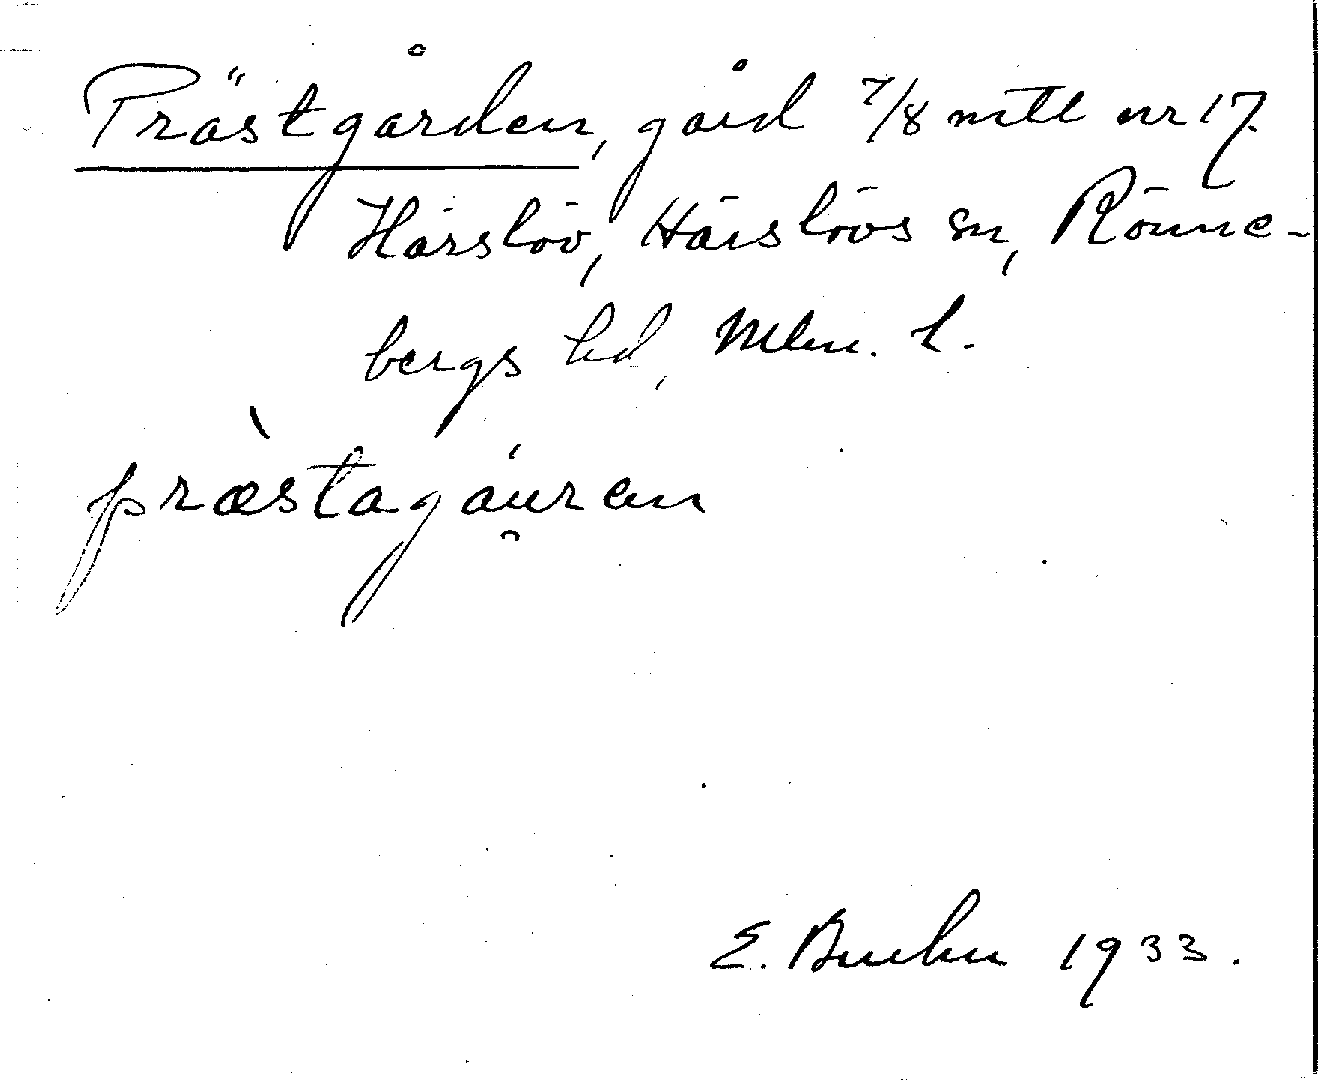 Prästgården, gård 7/8 mtl nr 17.
Härslöv, Härslövs sn, Rönne-
bergs hd, Mlm. l.
præ̀stagáu̯ren
E. 1933.